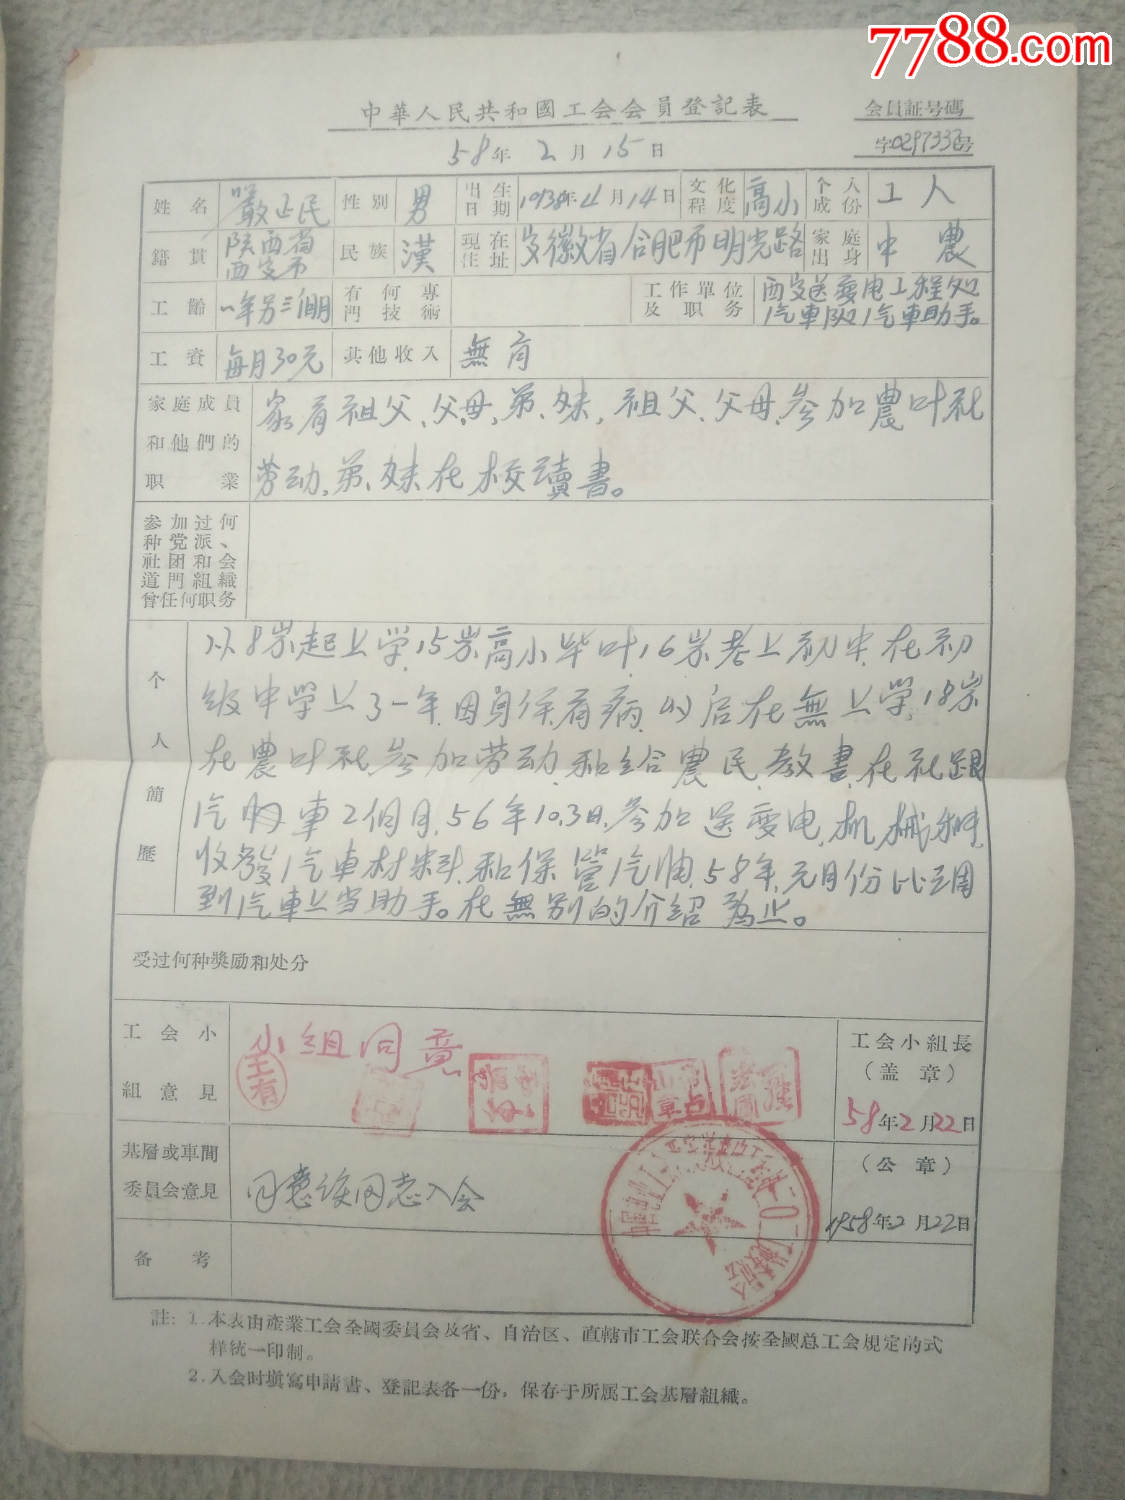 7788.com
中華人民共和國工会会員登記表
会員証号碼
58年2月15日
字029733号
姓名 嚴正民 性別 男 出生日期 1938年4月14日 文化程度 高小 个人成份 工人
籍貫 陕西省西安市 民族 漢 現在住址 安徽省合肥市明光路 家庭出身 中農
工齡 一年另三個月 有何專門技術 工作單位及职务 西安送变电工程处汽車队汽車助手。
工資 每月30元 其他收入 無有
家庭成員和他們的职業
家有祖父、父母,弟、妹,祖父、父母,参加農叶社
劳动,弟、妹在校讀書。
参加过何种党派、社团和会道門組織曾任何职务
个人簡歷
从8岁起上学,15岁高小毕叶,16岁考上初中,在初
级中学上了一年,因身体有病,以后在無上学,18岁
在農叶社参加劳动,和给農民教書,在社跟
汽車2個月,56年10.3日,参加送变电,机械科,
收發汽車材料,和保管汽油,58年元月份
到汽車上当助手。在無別的介紹為止。
受过何种獎励和处分
工会小組意見
小組同意
王有
工会小組長
(盖章)
58年2月22日
基層或車間委員会意見
同意该同志入会
(公章)
1958年2月22日
备考
註:1.本表由產業工会全國委員会及省、自治区、直轄市工会联合会按全國总工会規定的式
样統一印制。
2.入会时填寫申請書、登記表各一份,保存于所属工会基層組織。